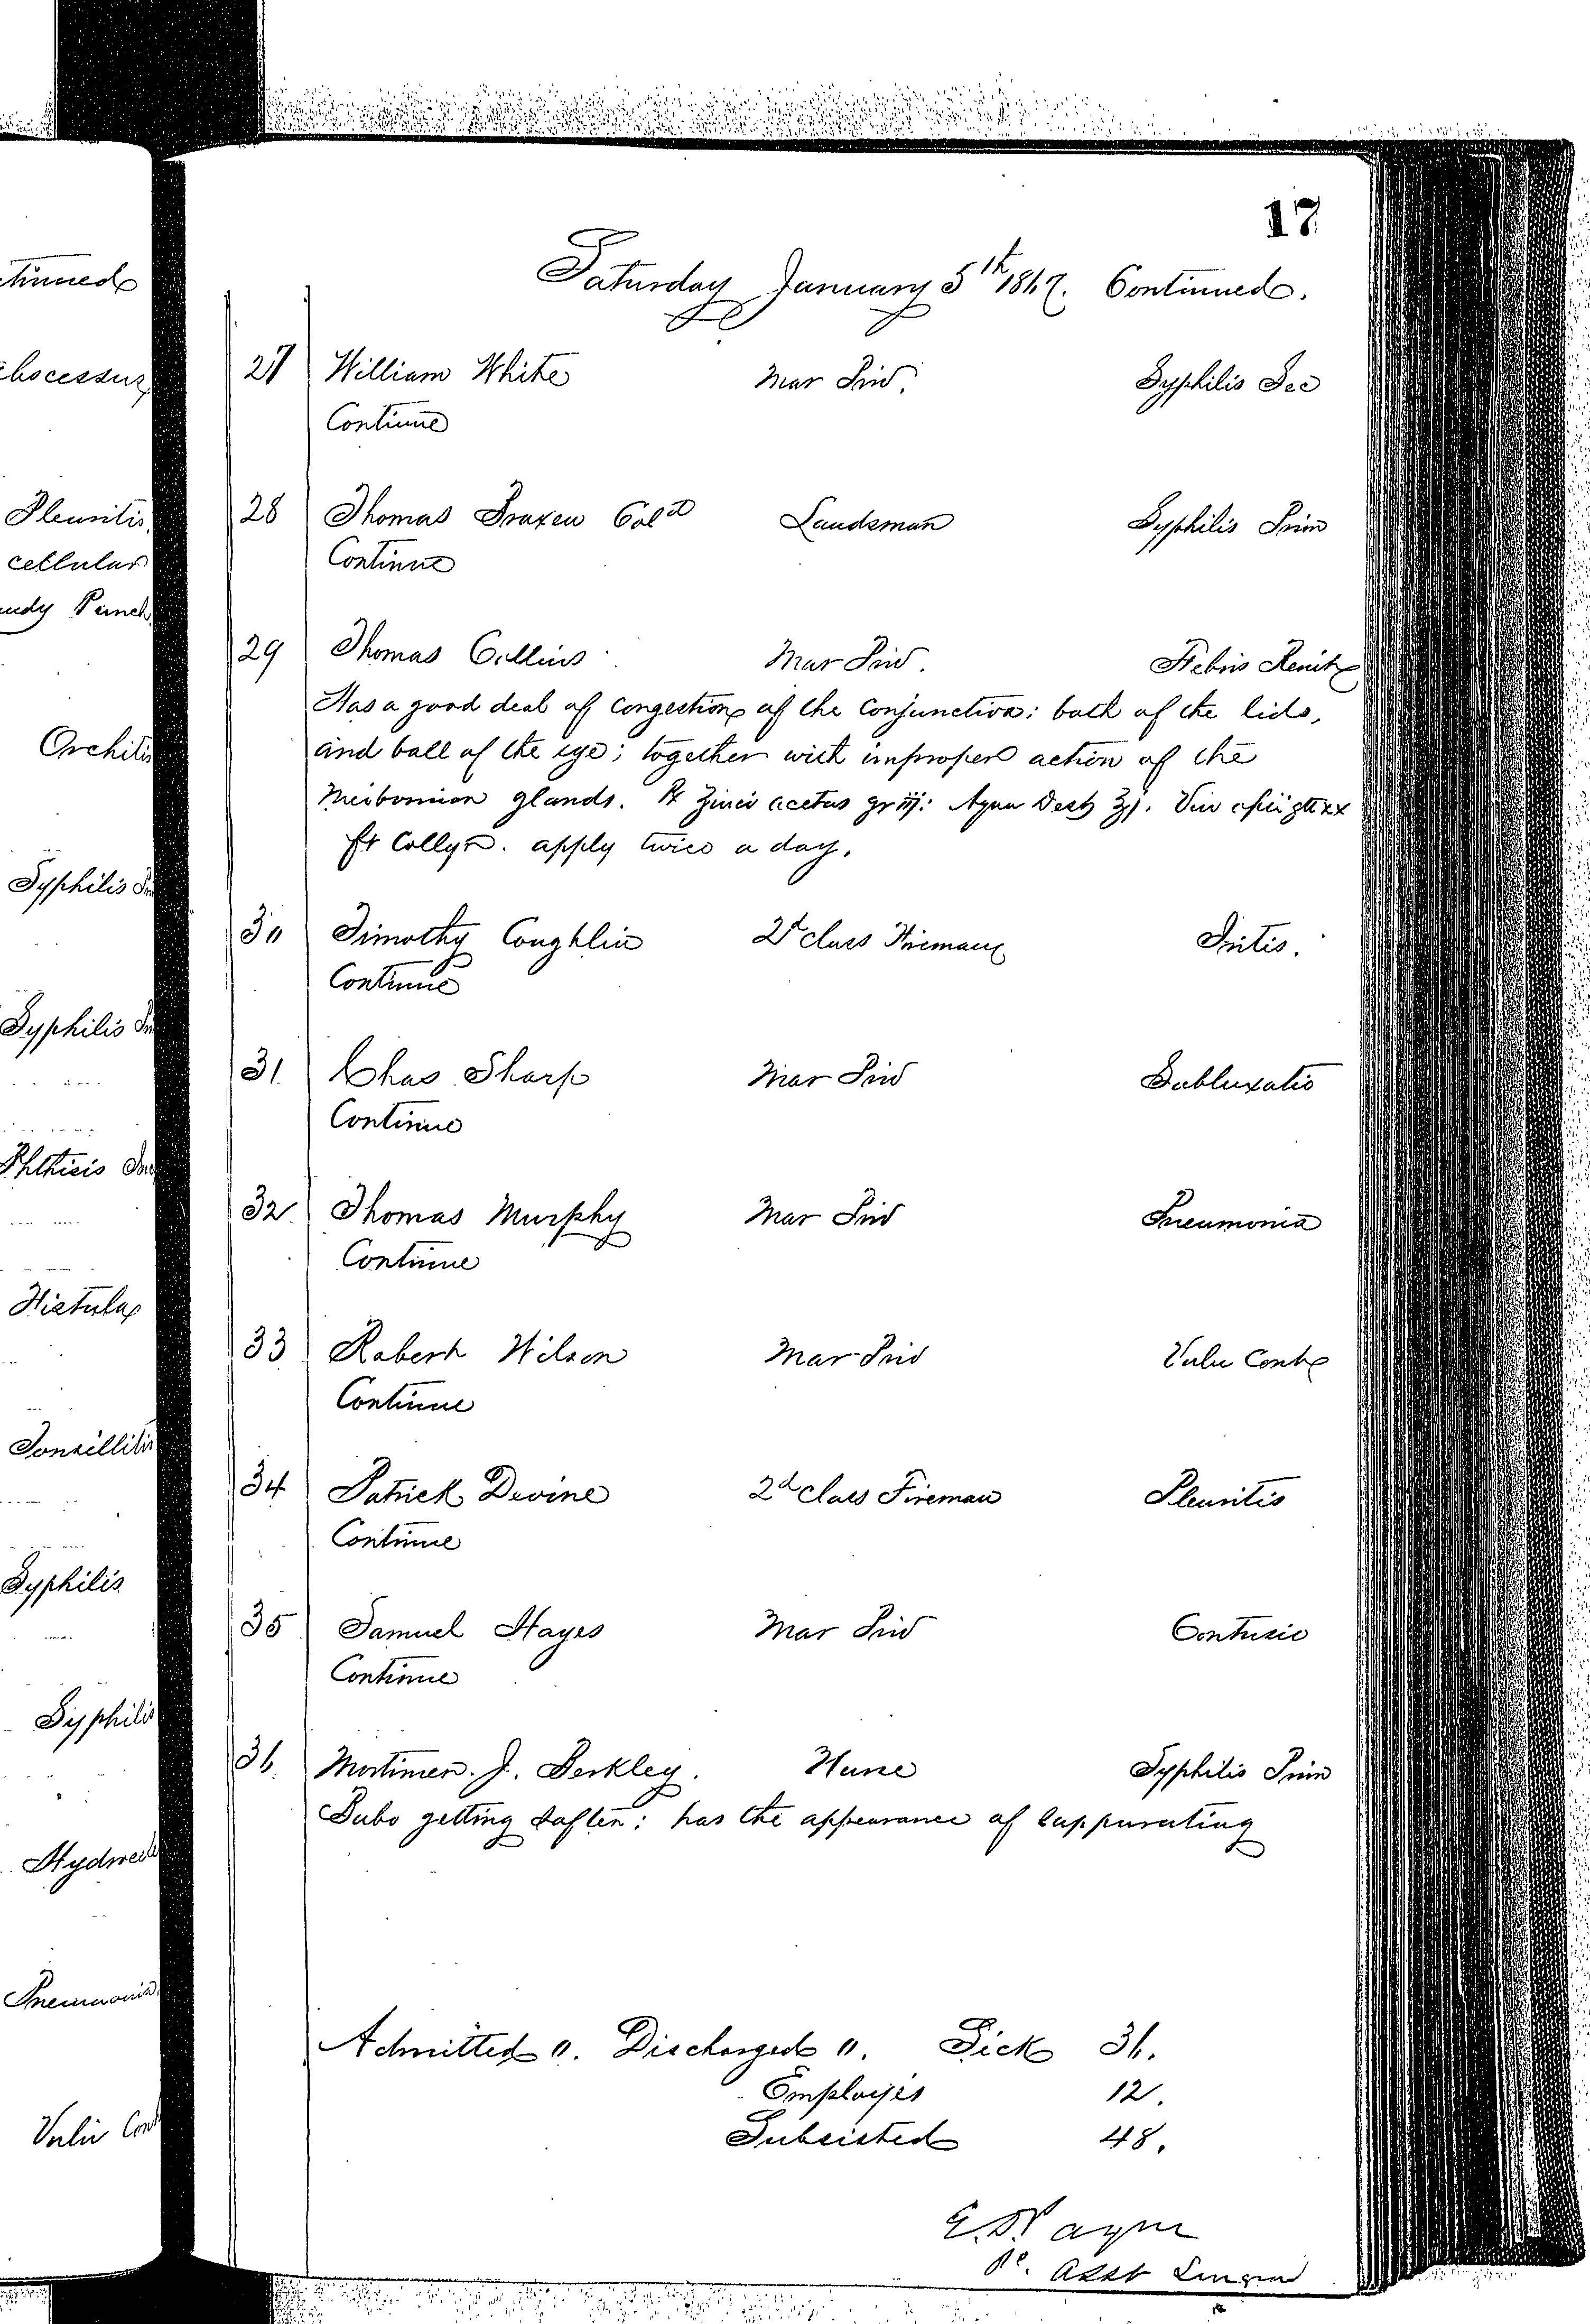 17
Saturday January 5th 1867. Continued.
27 William White Mar Priv. Syphilis Sec
Continue
28 Thomas Cold Landsman Syphilis Prim
Continue
29 Thomas Collins Mar Priv. Febris Remit
Has a good deal of congestion of the conjunctiva: both of the lids,
and ball of the eye; together with improper action of the
Meibomian glands. ℞ Zinci acetas gr iij: Aqua Dest ℥j. Vin opii gtt xx
ft Collyr. apply twice a day.
30 Timothy Coughlin 2d class Fireman Iritis.
Continue
31 Chas Sharp Mar Priv Subluxatio
Continue
32 Thomas Murphy Mar Priv Pneumonia
Continue
33 Robert Wilson Mar Priv Vuln Cont
Continue
34 Patrick Devine 2d class Fireman Pleuritis
Continue
35 Samuel Hayes Mar Priv Contusio
Continue
36 Mortimer J. Berkley. Nurse Syphilis Prim
Bubo getting softer: has the appearance of suppurating
Admitted 0. Discharged 0. Sick 36.
Employés 12.
Subsisted 48.
Asst Surgeon
tinued
bscessus
Pleuritis
cellular
Punch
Orchitis
Syphilis
Syphilis
Phthisis
Fistula
Tonsillitis
Syphilis
Syphilis
Pneumonia
Vuln Cont